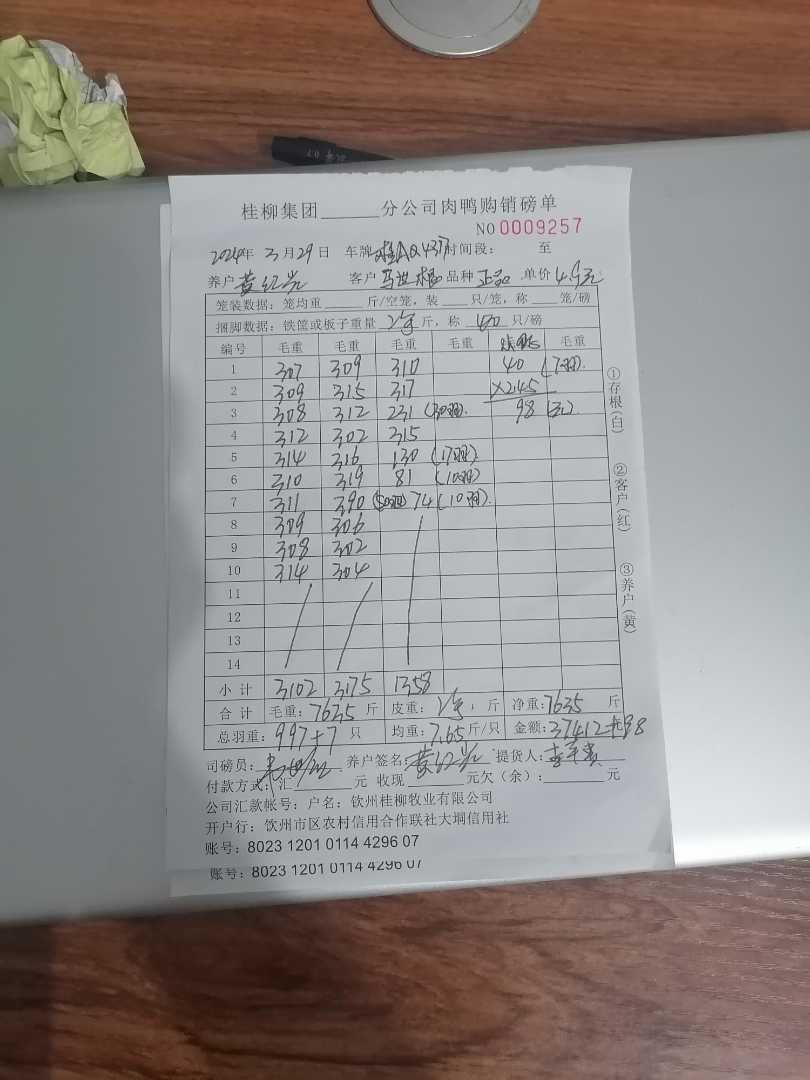 桂柳集团______分公司肉鸭购销磅单
NO 0009257
2024年 3月29日 车牌 时间段: 至
养户 黄红光 客户 马世 品种 正品 单价 4.9元
笼装数据: 笼均重______斤/空笼, 装___只/笼, 称___笼/磅
捆脚数据: 铁筐或板子重量 斤, 称 40 只/磅
编号 毛重 毛重 毛重 毛重 毛重
1 307 309 310 40 (7羽)
2 309 315 317 ×2.45
3 308 312 231 (30羽) 98 (元)
4 312 302 315
5 314 316 130 (17羽)
6 310 319 81 (10羽)
7 311 390 (50羽) 74 (10羽)
8 309 306
9 308 302
10 314 304
11
12
13
14
小计 3102 3175 1358
合计 毛重: 7635 斤 皮重: 斤 净重: 7635 斤
总羽重: 997+7 只 均重: 7.65 斤/只 金额: 37412+98
司磅员: 养户签名: 黄红光 提货人:
付款方式: 汇______元 收现______元欠(余):______元
公司汇款帐号: 户名: 钦州桂柳牧业有限公司
开户行: 钦州市区农村信用合作联社大垌信用社
账号: 8023 1201 0114 4296 07
账号: 8023 1201 0114 4296 07
①存根(白)
②客户(红)
③养户(黄)